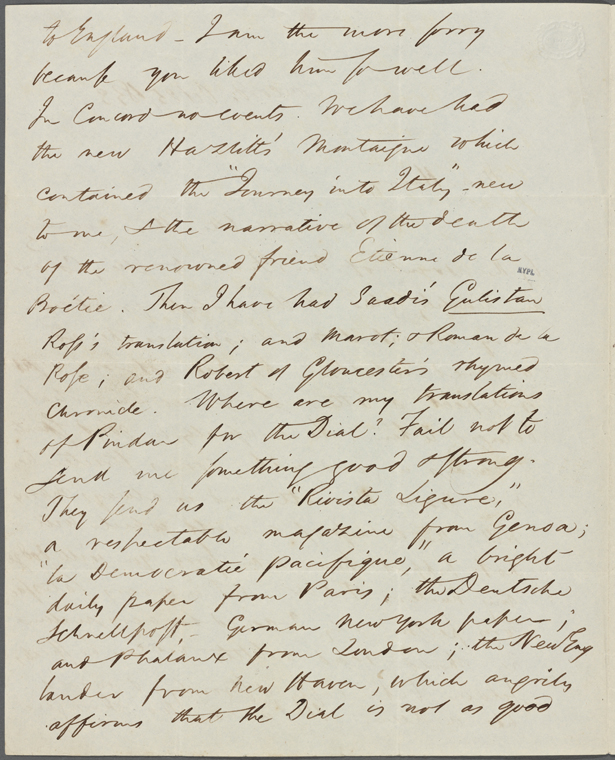 to England – I am the more sorry
because you liked him so well.
In Concord no events. We have had
the new Hazlitt's Montaigne which
contained the "Journey into Italy" – new
to me, & the narrative of the death
of the renowned friend Etienne de la
NYPL
Boétie. Then I have had Saadi's Gulistan
Ross's translation; and Marot; & Roman de la
Rose; and Robert of Gloucester's rhymed
chronicle. Where are my translations
of Pindar for the Dial? Fail not to
send me something good & strong.
They send us the "Rivista Ligure,"
a respectable magazine from Genoa;
"la Democratie pacifique," a bright
daily paper from Paris; the Deutsche
Schnellpost, – German New York paper;
and Phalanx from London; the New Eng
lander from New Haven, which angrily
affirms that the Dial is not as good